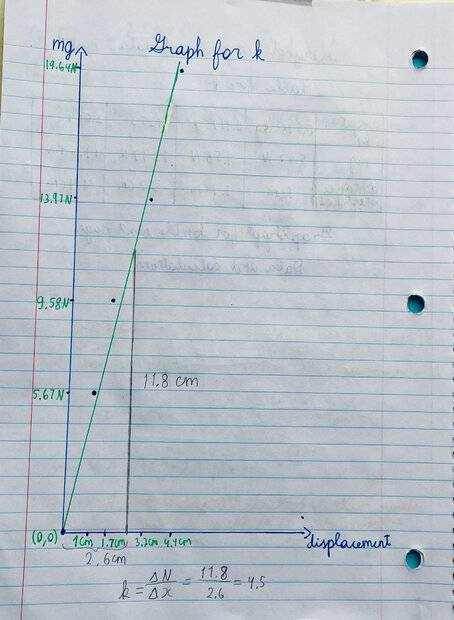 Graph for k
mg
19.64N
13.97N
9.58N
5.67N
11.8 cm
(0,0) 1cm 1.7cm 3.3cm 4.4cm displacement
2,6cm
k = ΔN/Δx = 11.8/2.6 = 4,5